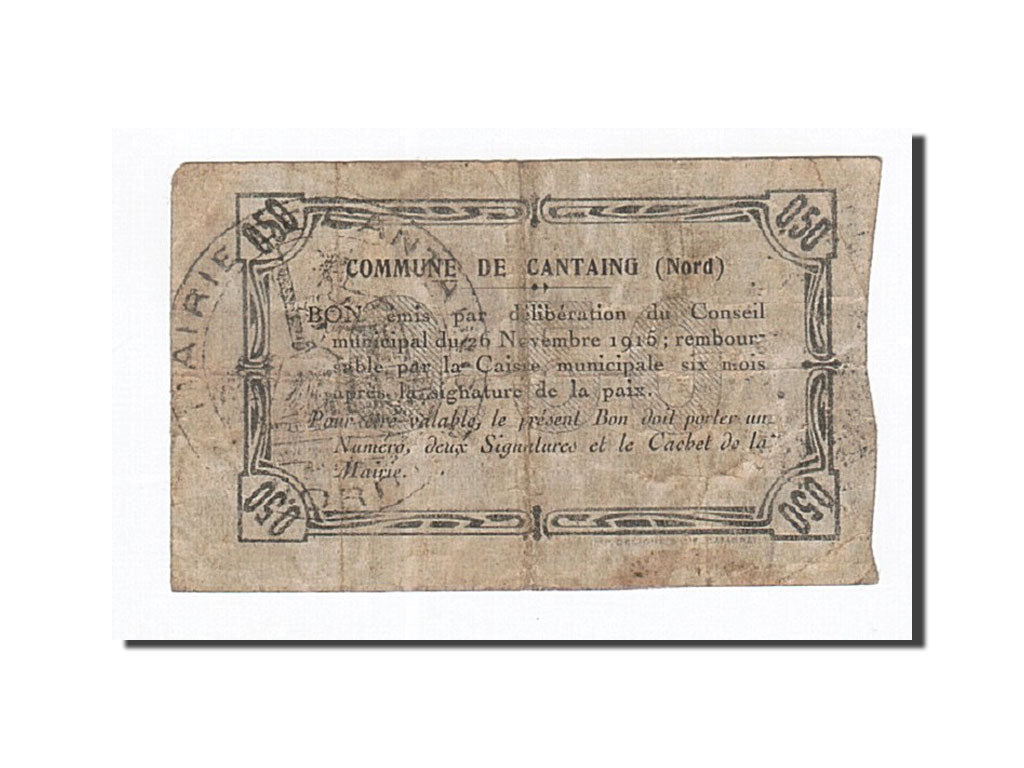 0,50 0,50
MAIRIE CANTA
COMMUNE DE CANTAING (Nord)
BON émis par délibération du Conseil
municipal du 26 Novembre 1915 ; rembour-
sable par la Caisse municipale six mois
après la signature de la paix.
Pour être valable, le présent Bon doit porter un
Numéro, deux Signatures et le Cachet de la
Mairie.
NORD
0,50 0,50